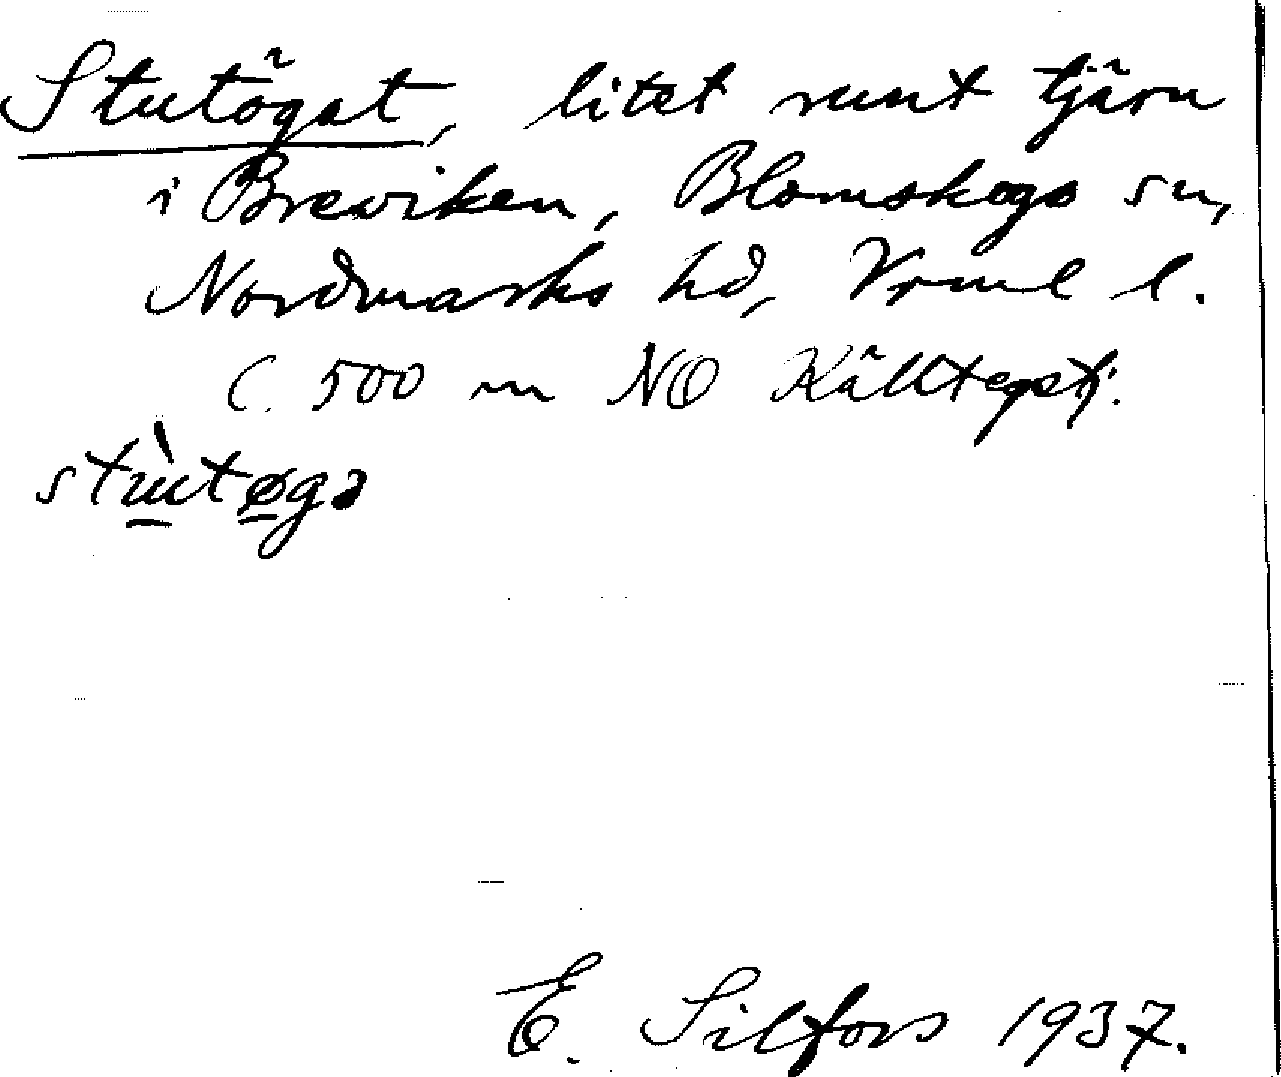 Stutögat, litet runt tjärn
i Breviken, Blomskogs sn,
Nordmarks hd, Vrml l.
C. 500 m NO Källtegstj:
stùtøgə
E. Silfors 1937.